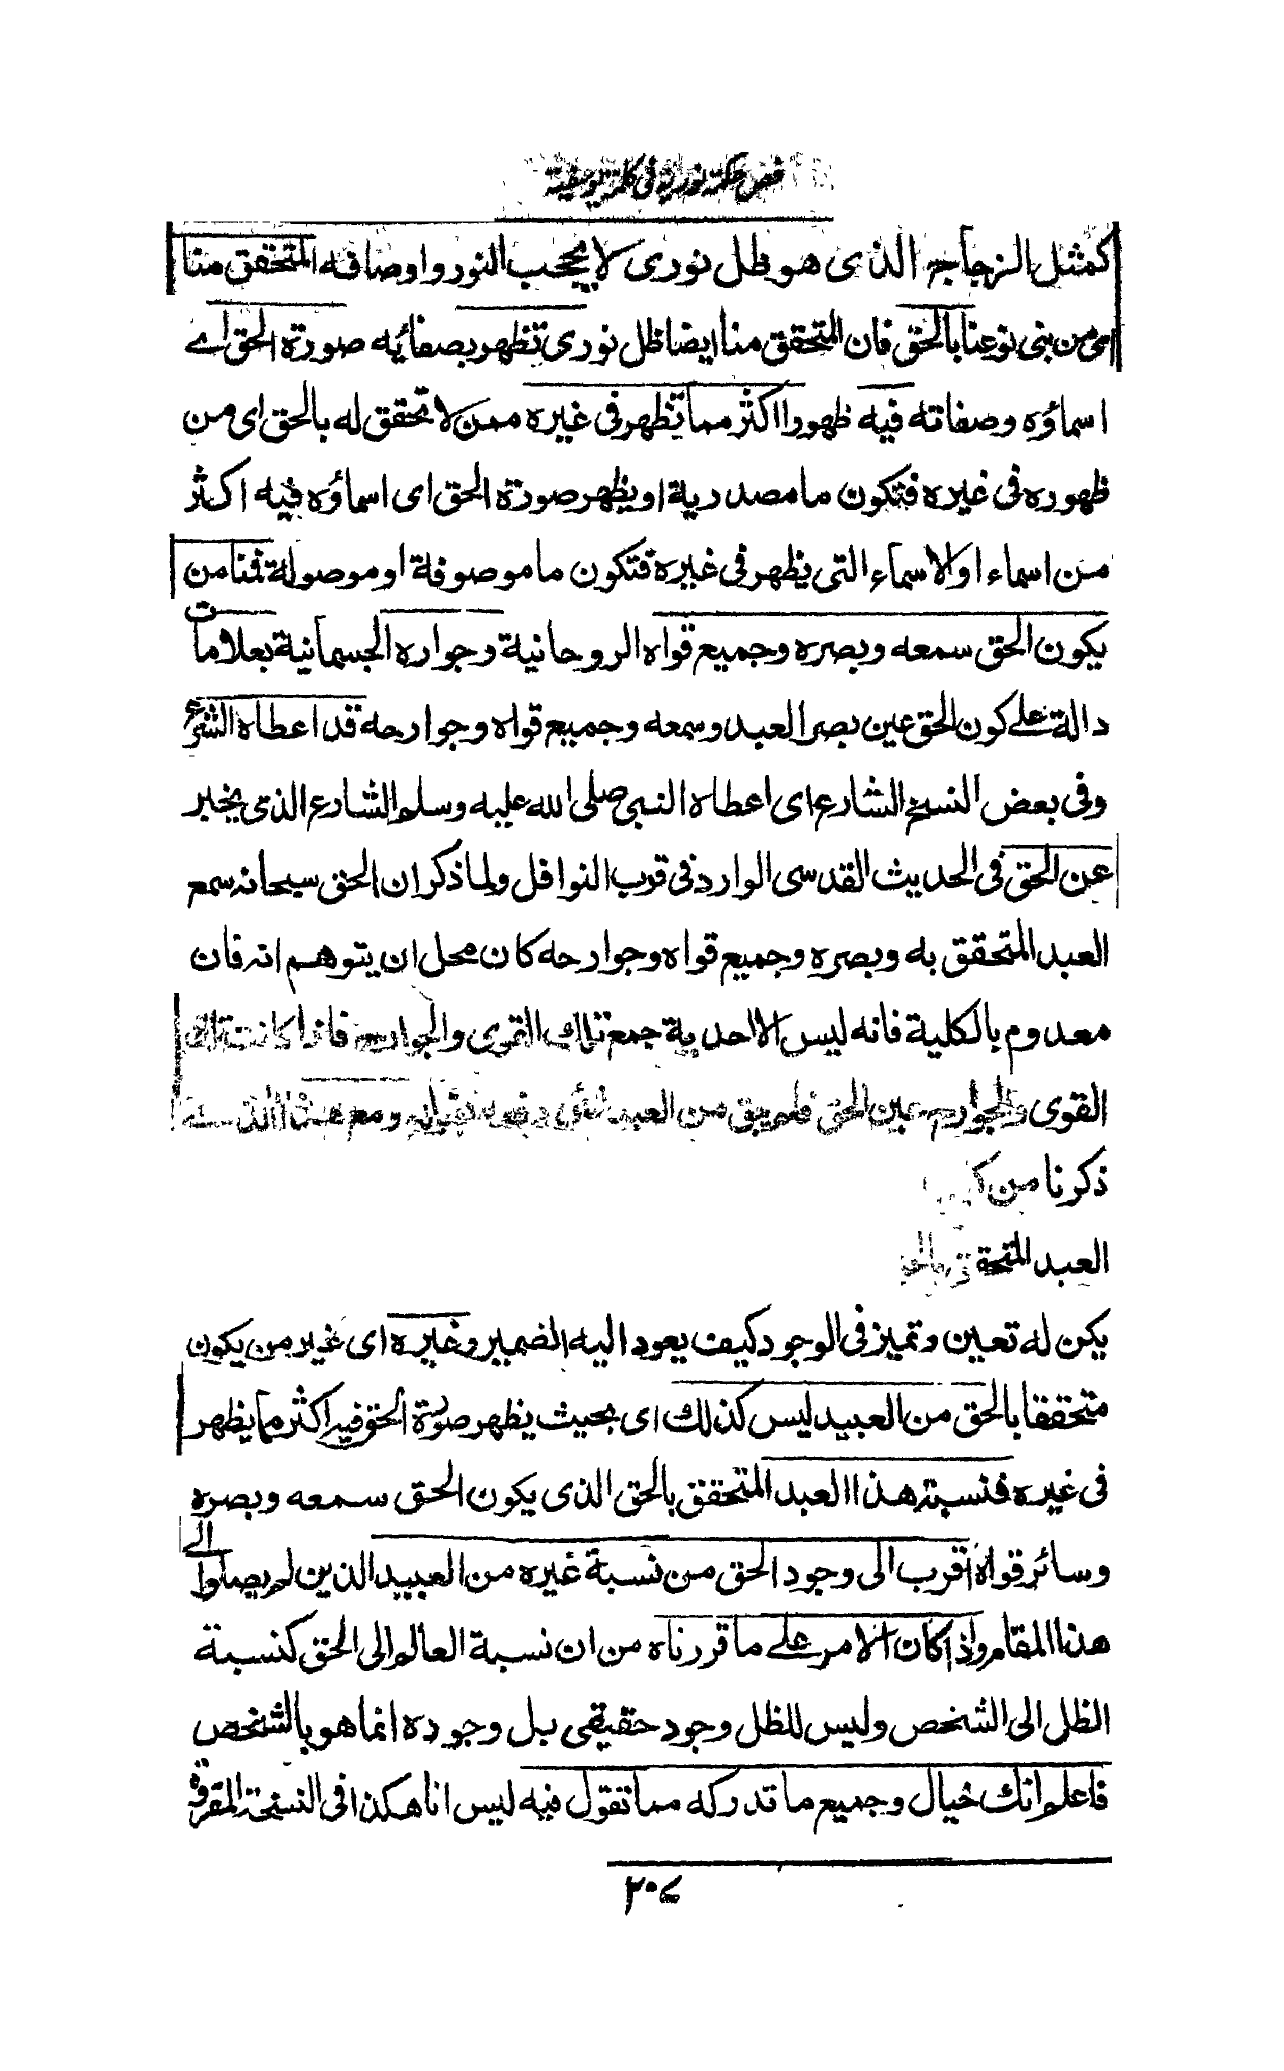 فص حكمة نورية في كلمة يوسفية
كمثل الزجاج الذى هو ظل نورى لا يحجب النور واوصافه المتحقق منا
اى من بنى نوعنا بالحق فان المتحقق منا ايضا ظل نورى تظهر بصفائه صورة الحق اے
اسماؤه وصفاته فيه ظهورا اكثر مما تظهر فى غيره ممن لا تحقق له بالحق اى من
ظهوره فى غيره فتكون ما مصدرية او يظهر صورة الحق اى اسماؤه فيه اكثر
من اسماء او الاسماء التى يظهر فى غيره فتكون ما موصوفة او موصولة فمنا من
يكون الحق سمعه وبصره وجميع قواه الروحانية وجوارہ الجسمانية بعلامات
دالة علے كون الحق عين بصر العبد وسمعه وجميع قواه وجوارحه قد اعطاه الشرع
وفى بعض النسخ الشارع اى اعطاه النبى صلى الله عليه وسلم الشارع الذى يخبر
عن الحق فى الحديث القدسى الوارد فى قرب النوافل ولما ذكر ان الحق سبحانه سمع
العبد المتحقق به وبصره وجميع قواه وجوارحه كان محل ان يتوهم انه فان
معدوم بالكلية فانه ليس الا احدية جمع تلك القوى والجوارح فاذا كانت تلك
القوى والجوارح عين الحق فلم يبق من العبد شئ ومع هذا
ذكرنا من
العبد المتحقق بالحق
يكن له تعين وتميز فى الوجود كيف يعود اليه الضمير وغيره اى غير من يكون
متحققا بالحق من العبيد ليس كذلك اى بحيث يظهر صورة الحق فيه اكثر مما يظهر
فى غيره فنسبة هذا العبد المتحقق بالحق الذى يكون الحق سمعه وبصره
وسائر قواه اقرب الى وجود الحق من نسبة غيره من العبيد الذين لم يصلوا الے
هذا المقام واذا كان الامر علے ما قررناه من ان نسبة العالم الى الحق كنسبة
الظل الى الشخص وليس للظل وجود حقيقى بل وجوده انما هو بالشخص
فاعلم انك خيال وجميع ما تدركه مما تقول فيه ليس انا هكذا فى النسخة المقروة
۲۰۷